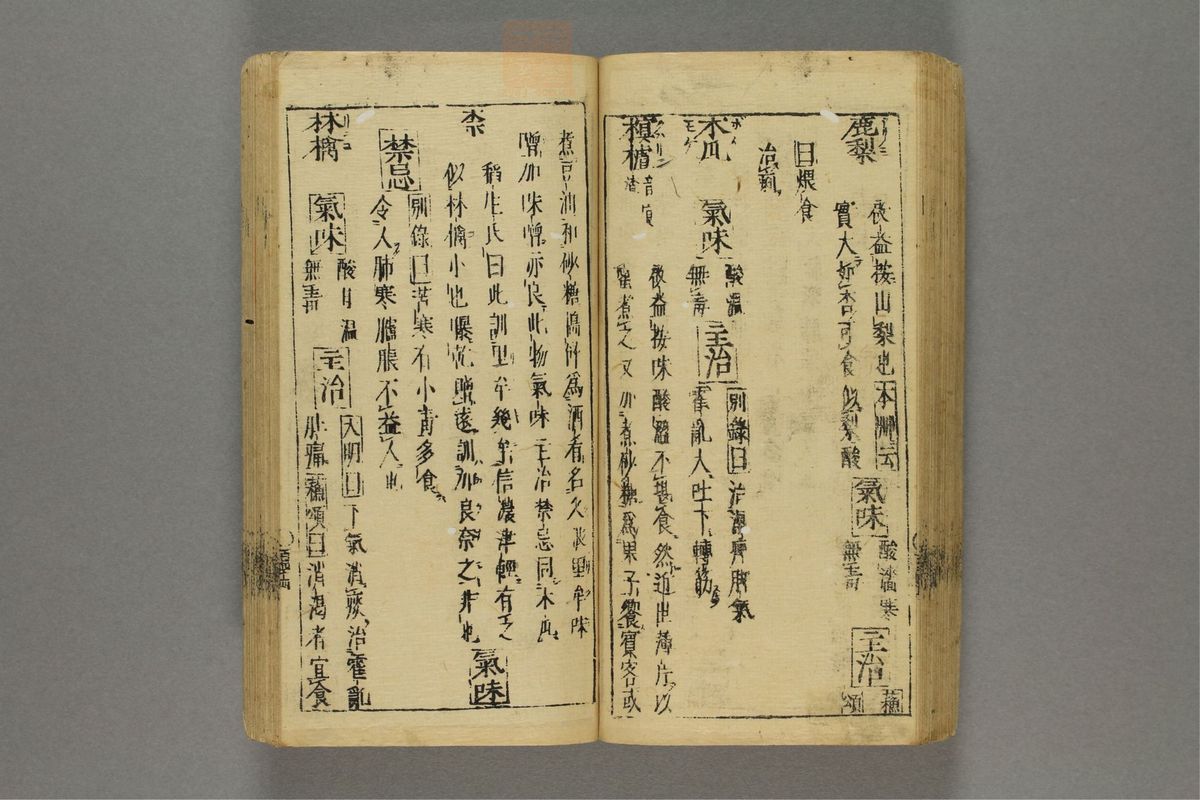 鹿梨
夜益按山梨也本草云
實大如杏可食似梨酸
氣味
酸濇寒
無毒
主治
蘇
頌
曰煨食
治痢
木瓜
氣味
酸溫
無毒
主治
別錄曰治濕痹脚氣
霍亂大吐下轉筋
榠樝
音
渣
夜益按味酸澀不堪食然近世薄片以
蜜煮之又加煮砂糖爲果子饗賓客或
煮豆油和砂糖為酒肴名久波里牟味
噌加味噌亦良此物氣味主治禁忌同木瓜
柰
稻生氏曰此訓里牟幾牟信濃津輕有之
似林檎小也曝乾鹽遠訓加良奈之非也
氣味
禁忌
別錄曰苦寒有小毒多食
令人肺寒臚脹不益人也
林檎
氣味
酸甘温
無毒
主治
大明曰下氣消痰治霍亂
肚痛蘇頌曰消渴者宜食